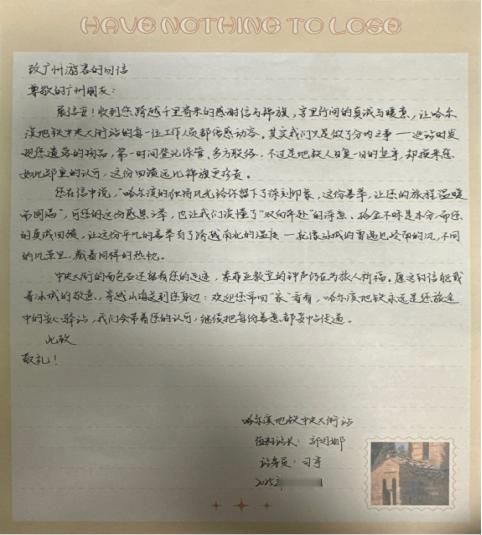 HAVE NOTHING TO LOSE
致广州游客的回信
尊敬的广州朋友：
展信佳！收到您跨越千里寄来的感谢信与锦旗，字里行间的真诚与暖意，让哈尔
滨地铁中央大街站的每一位工作人员都倍感动容。其实我们只是做了分内之事——及时发
现您遗落的物品，第一时间登记保管、多方联络，不过是地铁人日复一日的坚守，却换来您
如此郑重的认可，这份回馈远比锦旗更珍贵。
您在信中说，“哈尔滨的独特风光给你留下了深刻印象，这份善举，让您的旅程温暖
而圆满”，可您的这份感恩之举，也让我们读懂了“双向奔赴”的深意。拾金不昧是本分，而您
的真诚回馈，让这份平凡的善举有了跨越南北的温度——就像冰城的雪遇上岭南的风，不同
的风景里，藏着同样的热忱。
中央大街的面包石还留有您的足迹，索菲亚教堂的钟声仍在为旅人祈福。愿这封信能载
着冰城的敬意，穿越山海送到您身边：欢迎您常回“家”看看，哈尔滨地铁永远是您旅途
中的安心驿站，我们会带着您的认可，继续把每份善意都妥帖传递。
此致
敬礼！
哈尔滨地铁中央大街站
值班站长：
站务员：司宇
2025年